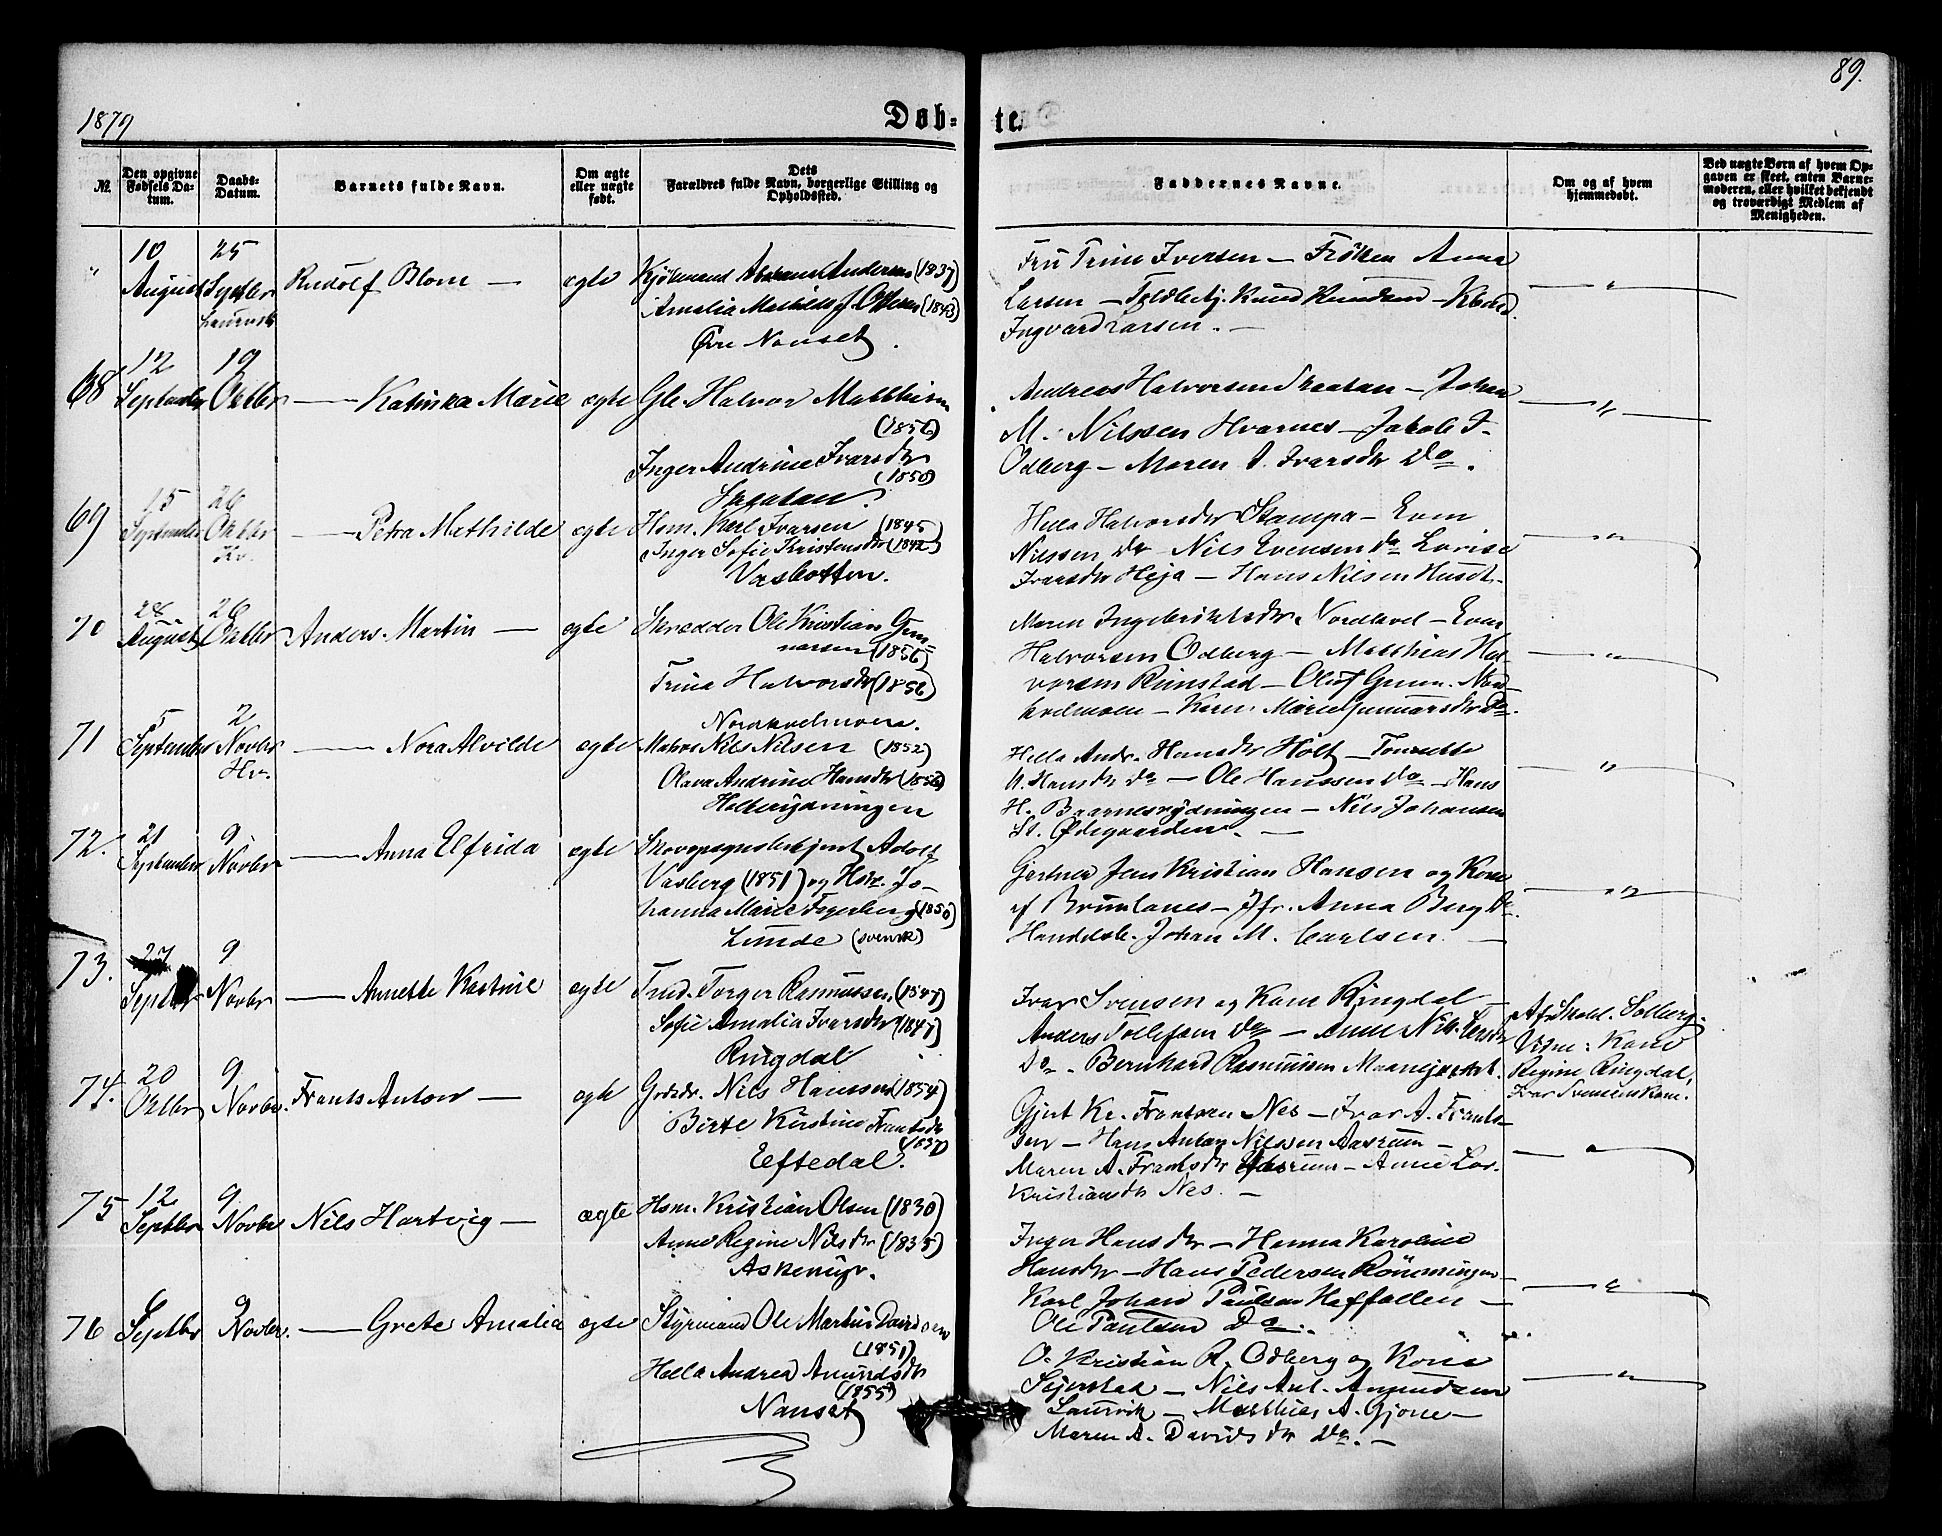 89.
1879
Døb-
te.
№
Den opgivne Fødsels Da-tum.
Daabs-Datum.
Barnets fulde Navn.
Om ægte eller uægte født.
Dets Forældres fulde Navn, borgerlige Stilling og Opholdssted.
Faddernes Navne.
Om og af hvem hjemmedøbt.
Ved uægte Børn af hvem Op-gaven er skeet, enten Barne-moderen, eller hvilket bekjendt og troværdigt Medlem af Menigheden.
" 10 August 25 Septbr Rudolf Blom — ægte
Kjøbmand Andersen (1837)
Amalia Mathilde f. Ottesen (1843)
Øvre Nanset
Fru Trine Iversen — Frøken Anna
Larsen — Knud Knudsen —
Ingvard Larsen. —
68 12 September 19 Oktbr — Katinka Marie ægte
Gle. Halvor Matthisen
(1856)
Inger Andrine Ivarsdtr
(1850)
Skaatan
Andreas Halvorsen Skaatan — Johan
M. Nilssen Hvarnes — Jakob I.
Odberg — Maren A. Ivarsdtr Do.
69 15 September 26 Oktbr Kv. — Petra Mathilde ægte
Hsm. Karl Ivarsen (1845
Inger Sofie Kristensdtr (1842)
Vasbotten.
Hella Halvorsdtr Stampa — Even
Nilssen do — Nils Evensen do Lovise
Ivarsdtr Heja — Hans Nilsen Huset.
70 28 August 26 Oktbr Anders Martin — ægte
Skrædder Ole Kristian Gun-
narsen (1856)
Trina Halvorsdtr (1856)
Nordkvelmoen.
Maren Ingebrigtsdtr Nordkvel — Even
Halvorsen Odberg — Matthias Hal-
vorsen Rimstad — Oluf Gunn. Nord-
kvelmoen — Karen Marie Gunnarsdtr Do.
71 5 September 2 Novbr Hv. — Nora Alvilde ægte
Matros Nils Nilsen (1852)
Olava Andrine Hansdtr (1856)
Holtrydningen
Hella Andr. Hansdtr Holt — Tonette
A. Hansdtr do — Ole Hanssen do — Hans
H. Baarnesrydningen — Nils Johansen
St. Ødegaarden. —
72. 21 September 9 Novbr — Anna Elfrida ægte
Skovopsynsbetjent Adolf
Vasberg (1851) og Hstr. Jo-
hanna Marie Fagerberg (1850)
Lunde (svensk)
Gartner Jens Kristian Hansen og Kone
af Brunlanes — Jfr. Anna Berg Do.
Handelsb. Johan M. Carlsen —
73. 27 Septbr 9 Novbr — Annette Kastine ægte
Torger Rasmussen (1847)
Sofie Amalia Ivarsdtr (1847)
Ringdal
Ivar Svensen og Kone Ringdal —
Anders Tollefsen do — Anne Nils Larsdtr
Do. Bernhard Rasmussen
Solberg.
Vidne: Kone
Regine Ringdal,
Ivar Svensens Kone.
74. 20 Oktbr 9 Novbr. Frants Anton — ægte
Grdbr. Nils Hanssen (1854)
Birte Kirstine Frantsdtr
(1857)
Eftedal.
Gjert Kr. Frantsen Nes — Ivar A. Frants-
sen — Hans Anton Nilssen Aasrum —
Maren A. Frantsdtr Aasrum — Anne Lov.
Kristiansdtr Nes. —
75 12 Septbr 9 Novbr Nils Hartvig — ægte
Hsm. Kristian Olsen (1830)
Anne Regine Nilsdtr (1835)
Askemyr.
Inger Hansdtr — Hanna Karoline
Hansdtr — Hans Pedersen Rønningen —
Karl Johan Paulsen Haffallen —
Ole Paulsen Do.
76 6 Septbr 9 Novbr. — Grete Amalia ægte
Styrmand Ole Martin Davidsen
(1851)
Hella Andrea Amundsdtr
(1855)
Nanset
O. Kristian R. Odberg og Kone
Sejerstad — Nils Ant. Amundsen
Laurvik — Matthias A. Gjone —
Maren A. Davidsdtr Do. —